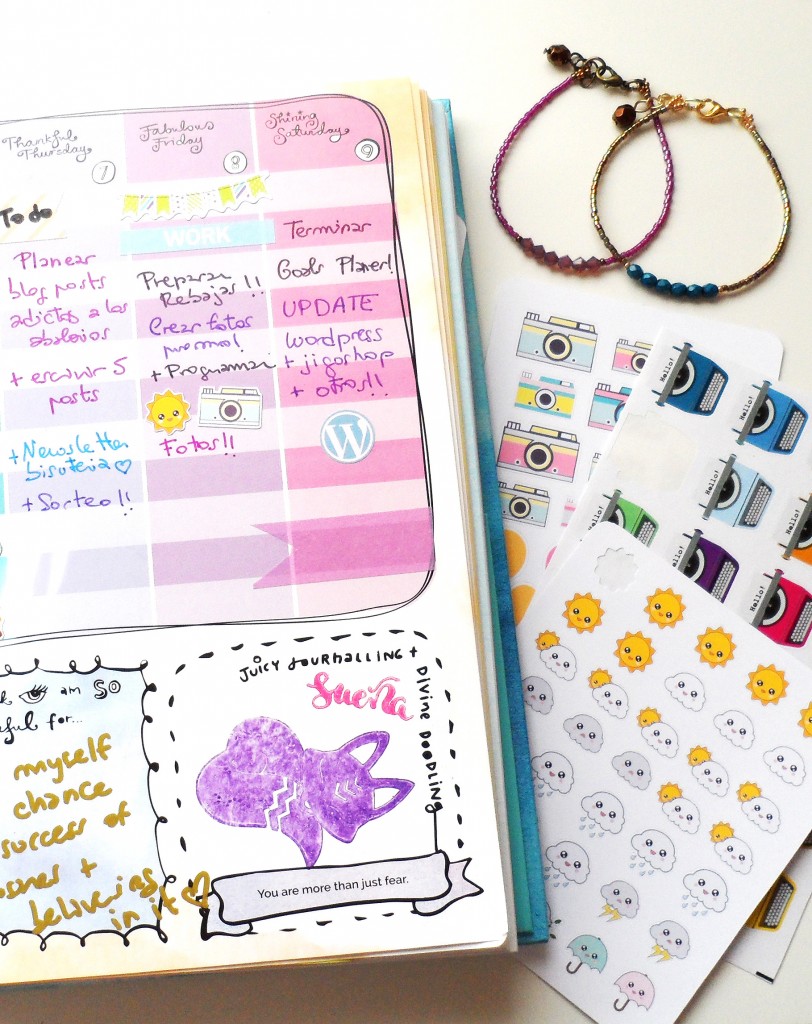 Thankful
Thursday
7
To do
Planear
blog posts
adictos a los
abalorios
+ escribir 5
posts
+ Newsletter
bisuteria
+ Sorteo!!
Fabulous
Friday
8
WORK
Preparar
Rebajas!!
Crear fotos
+ Programar
Fotos!!
Shining
Saturday
9
Terminar
Goals Planer!
UPDATE
wordpress
+ jigoshop
+ otros!!
W
am SO
for...
myself
chance
success of
+
believing
in it
JUICY JOURNALLING +
DIVINE DOODLING
Sueña
You are more than just fear.
Hello!
Hello!
Hello!
Hello!
Hello!
Hello!
Hello!